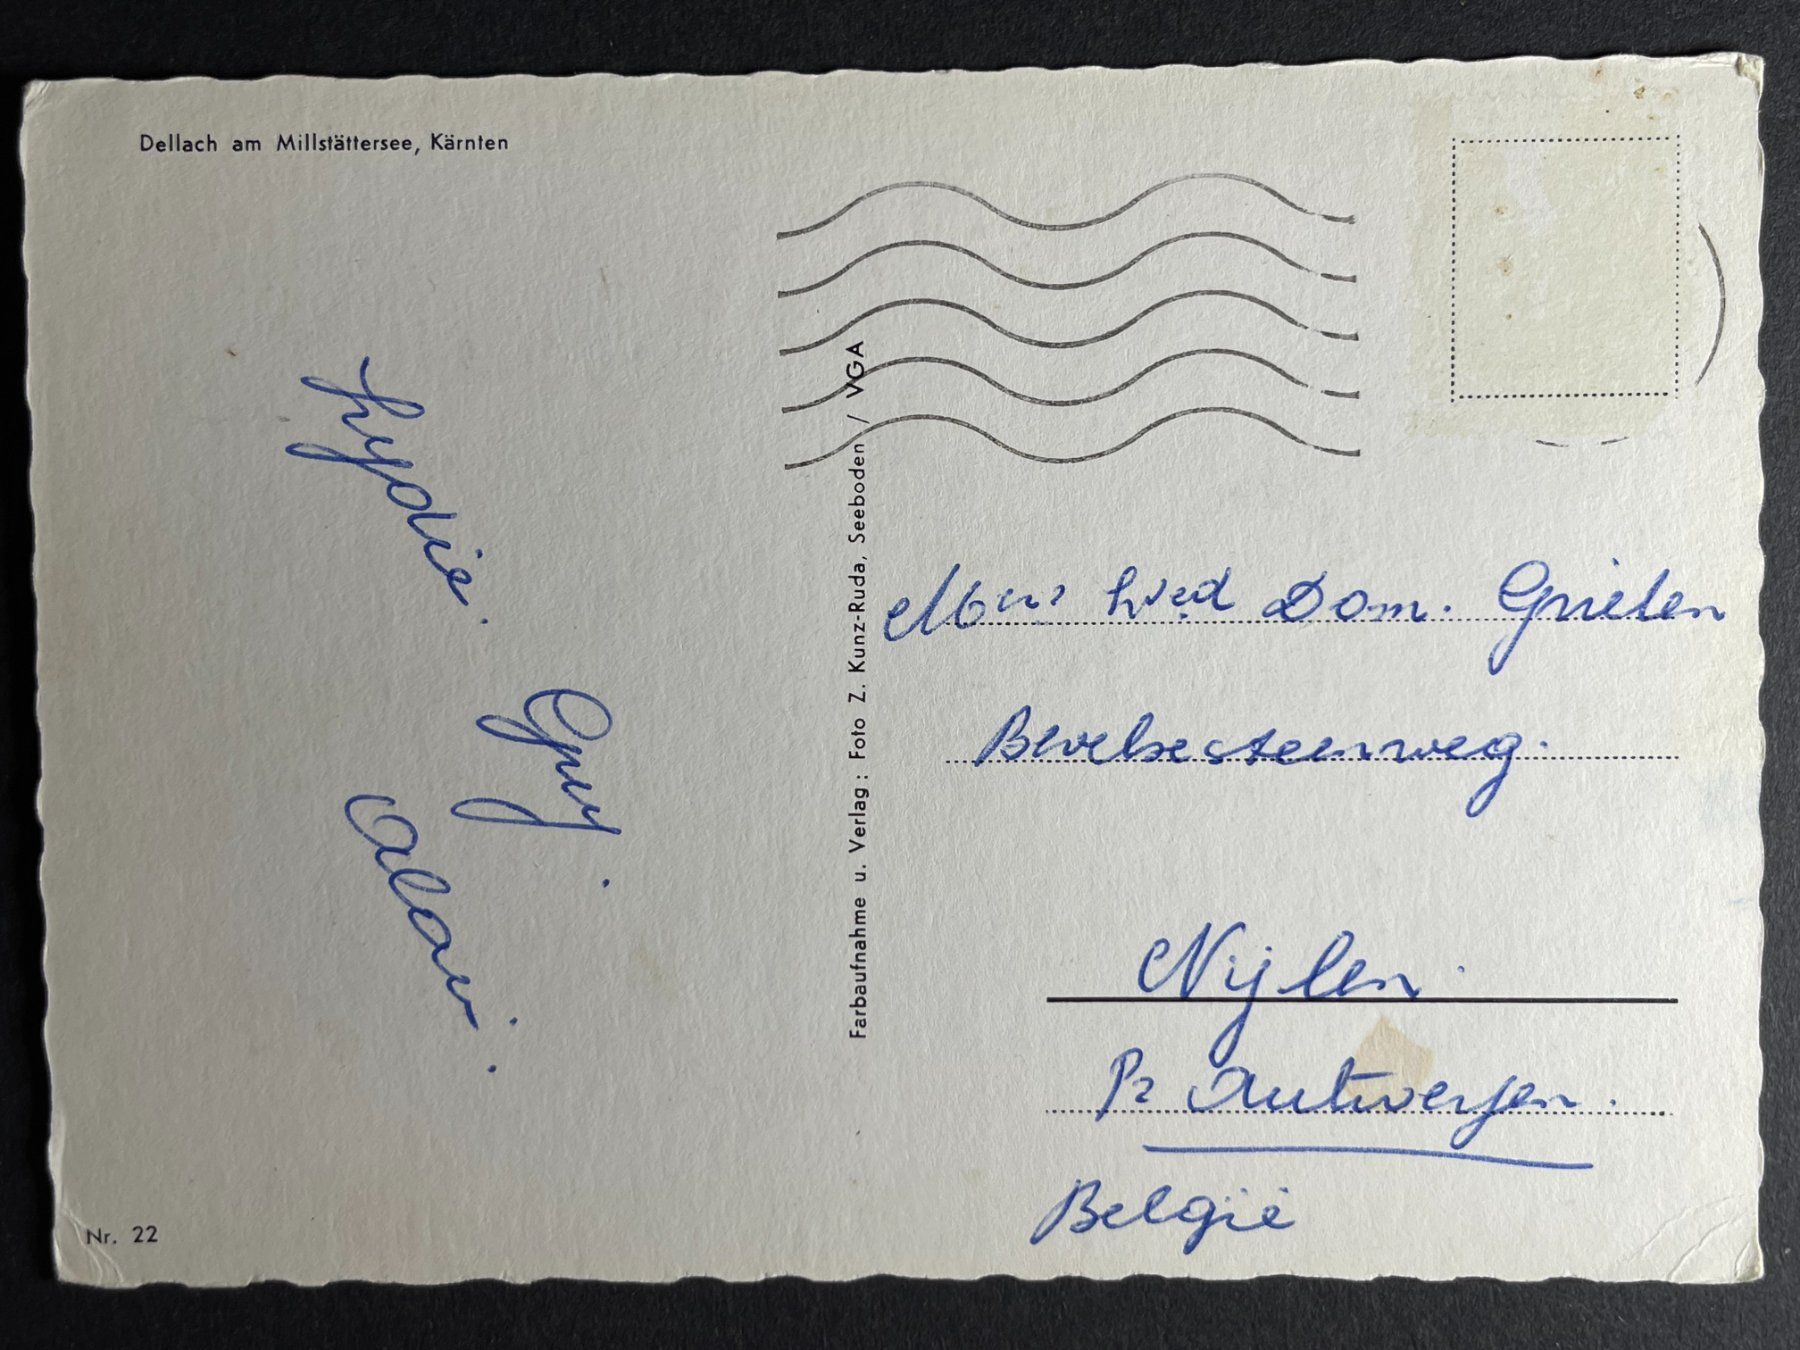 Dellach am Millstättersee, Kärnten
Lydie.
Guy.
Nr. 22
Farbaufnahme u. Verlag: Foto Z. Kunz-Ruda, Seeboden / VGA
Dom. Grielen
Bevelsesteenweg.
Nijlen.
Pr Antwerpen.
België